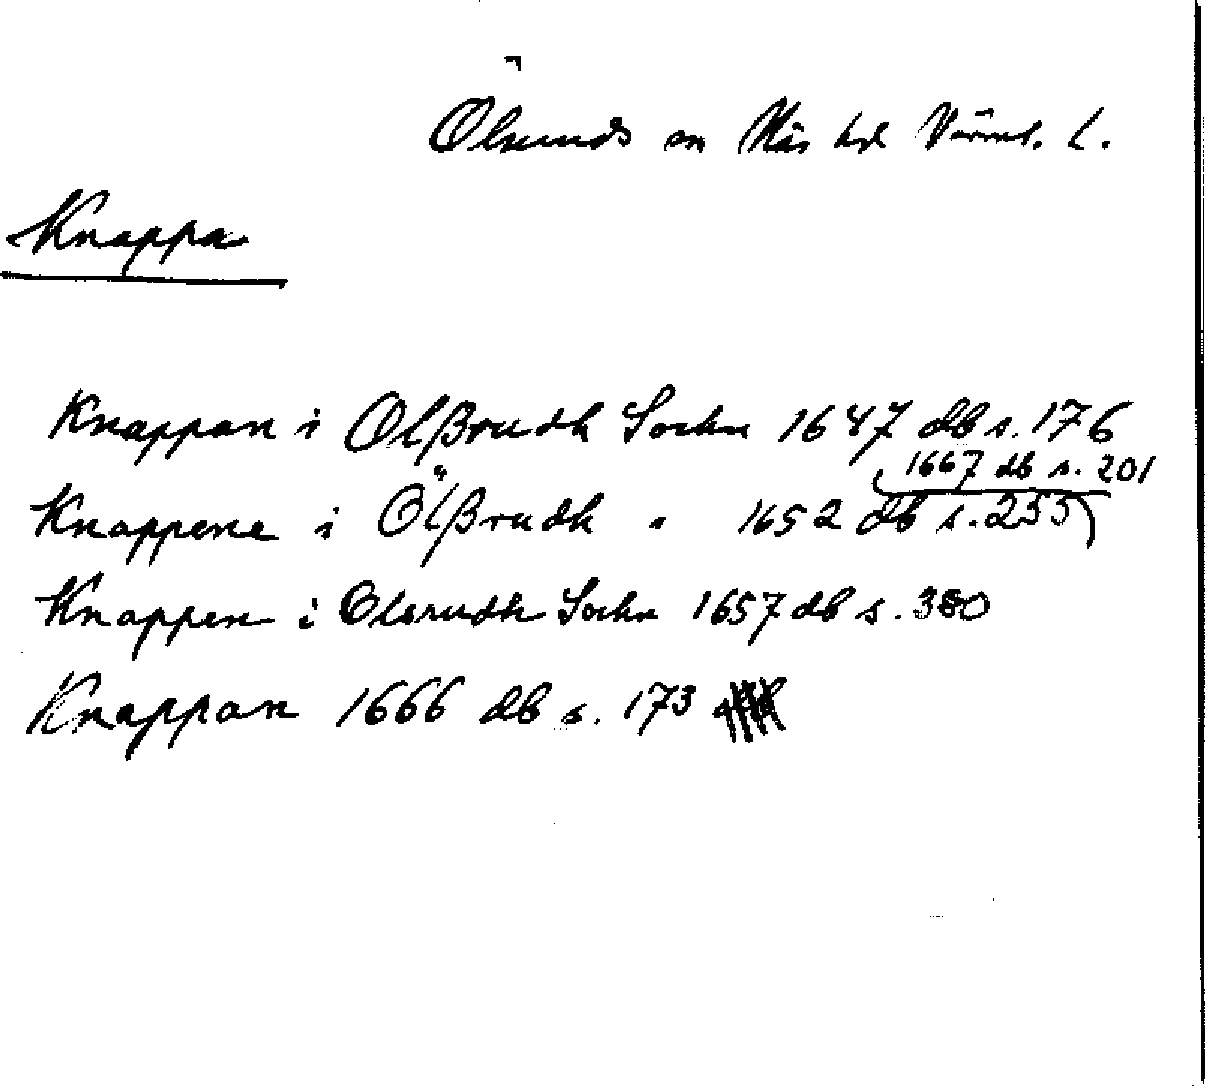 Ölseruds sn Näs hd Värml. l.
Knappa
Knappan i Olßrudh Sochn 1647 db s. 176
1667 db s. 201
Knappene i Ölßrudh " 1652 db s. 255
Knappen i Olsrudh Sochn 1657 db s. 380
Knappan 1666 db s. 173